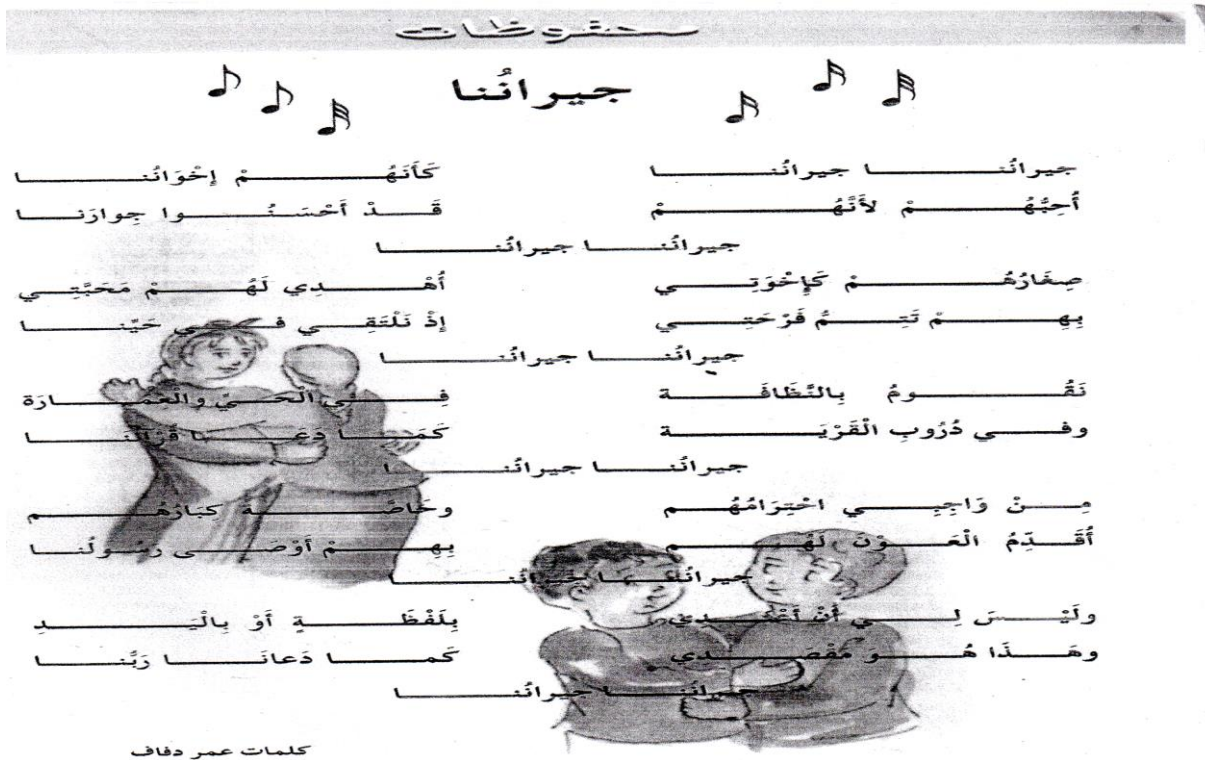 محفوظات
جيرانُنا
جيرانُنا جيرانُنا كَأَنَهُمْ إخْوَانُنا
أُحِبُّهُمْ لأَنَّهُمْ قَدْ أَحْسَنُوا جِوارَنا
جيرانُنا جيرانُنا
صِغَارُهُمْ كَإخْوَتِي أُهْدِي لَهُمْ مَحَبَّتِي
بِهِمْ تَتِمُّ فَرْحَتِي إذْ نَلْتَقِي في حَيِّنا
جيرانُنا جيرانُنا
نَقُومُ بِالنَّظَافَة فِي الْحَيّ والْعِمَارَة
وفي دُرُوبِ الْقَرْيَة كَمَا دَعَا قُرْآنُنَا
جيرانُنا جيرانُنا
مِنْ وَاجِبِي احْتِرَامُهُم وخَاصَّة كبَارُهُم
أُقَدِّمُ الْعَوْنَ لَهُم بِهِمْ أَوْصَى رسُولُنا
جيرانُنا جيرانُنا
ولَيْسَ لِي أَنْ أَعْتَدِي بِلَفْظَةٍ أَوْ بِالْيَدِ
وهَذَا هُو مَقْصَدِي كَما دَعانَا رَبّنا
جيرانُنا جيرانُنا
كلمات عمر دفاف